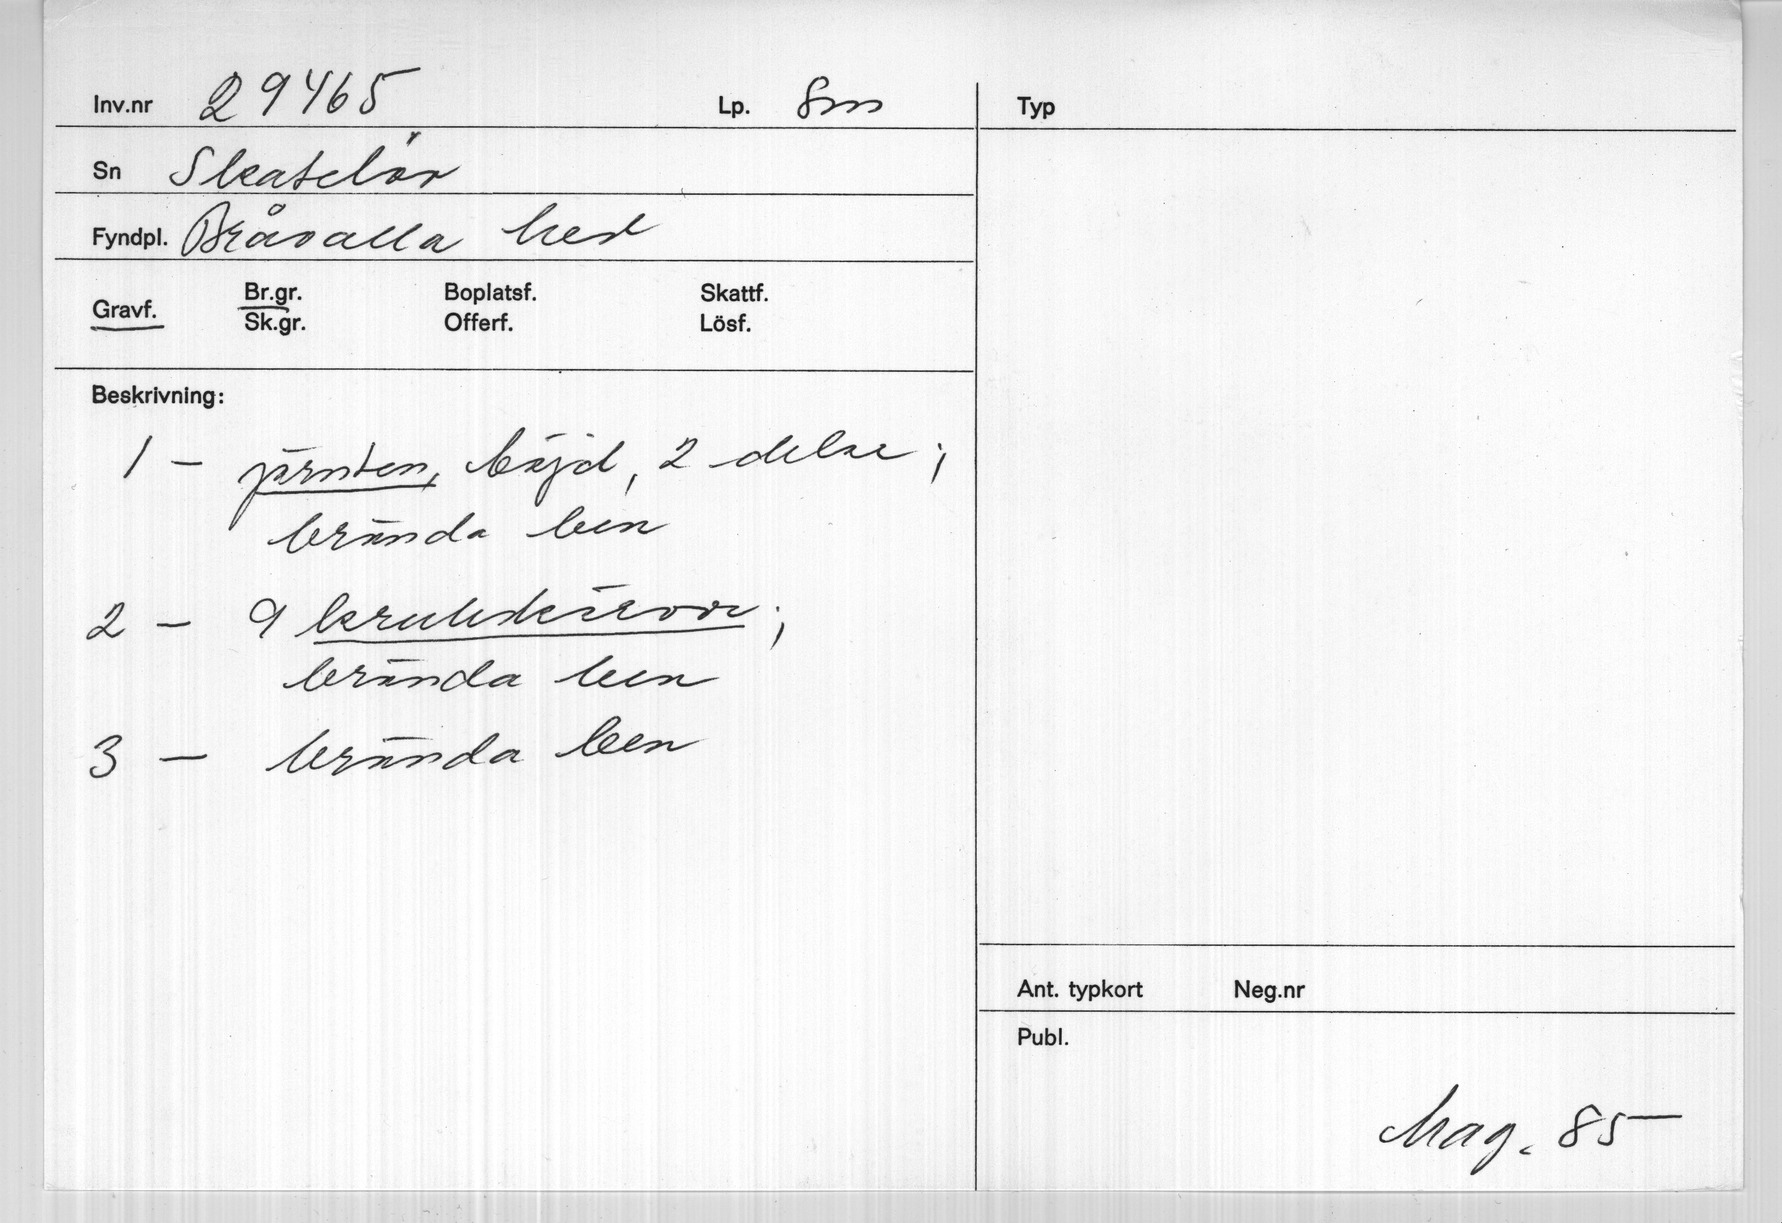 Inv.nr 29465 Lp. Sm
Sn Skatelöv
Fyndpl. Bråvalla hed
Gravf. Br.gr. Boplatsf. Skattf.
Sk.gr. Offerf. Lösf.
Beskrivning:
1 – järnten, böjd, 2 delar;
brända ben
2 – 9 krukskärvor;
brända ben
3 – brända ben
Typ
Ant. typkort Neg.nr
Publ.
Mag. 85